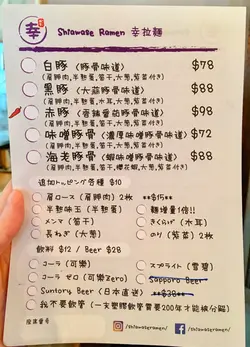 幸 Shiawase Ramen 幸拉麵
白豚 (豚骨味道) $78
(肩胛肉,半熟蛋,筍干,大葱,紫苔付き)
黒豚 (大蒜豚骨味道) $88
(肩胛肉,半熟蛋,木耳,大葱,紫苔付き)
赤豚 (香辣番茄豚骨味道) $98
(肩胛肉,半熟蛋,筍干,大葱,紫苔付き)
味噌豚骨 (濃厚味噌豚骨味道) $72
(肩胛肉,半熟蛋,筍干,大葱,紫苔付き)
海老豚骨 (蝦味噌豚骨味道) $88
(肩胛肉,半熟蛋,筍干,櫻花蝦,大葱,紫苔付き)
追加トッピング各種 $10
肩ロース (肩胛肉) 2枚 **$15**
麵増量1倍!!
半熟味玉 (半熟蛋)
きくらげ (木耳)
メンマ (筍干)
のり (紫苔) 2枚
長ねぎ (大葱)
飲料 $12 / Beer $28
コーラ (可樂)
スプライト (雪碧)
コーラ ゼロ (可樂Zero)
Sapporo Beer
Suntory Beer (日本直送)
**$38**
我不要飲管 (一支塑膠飲管需要200年才能被分解)
座席番号
/shiawaseramen/
/shiawaseramen/